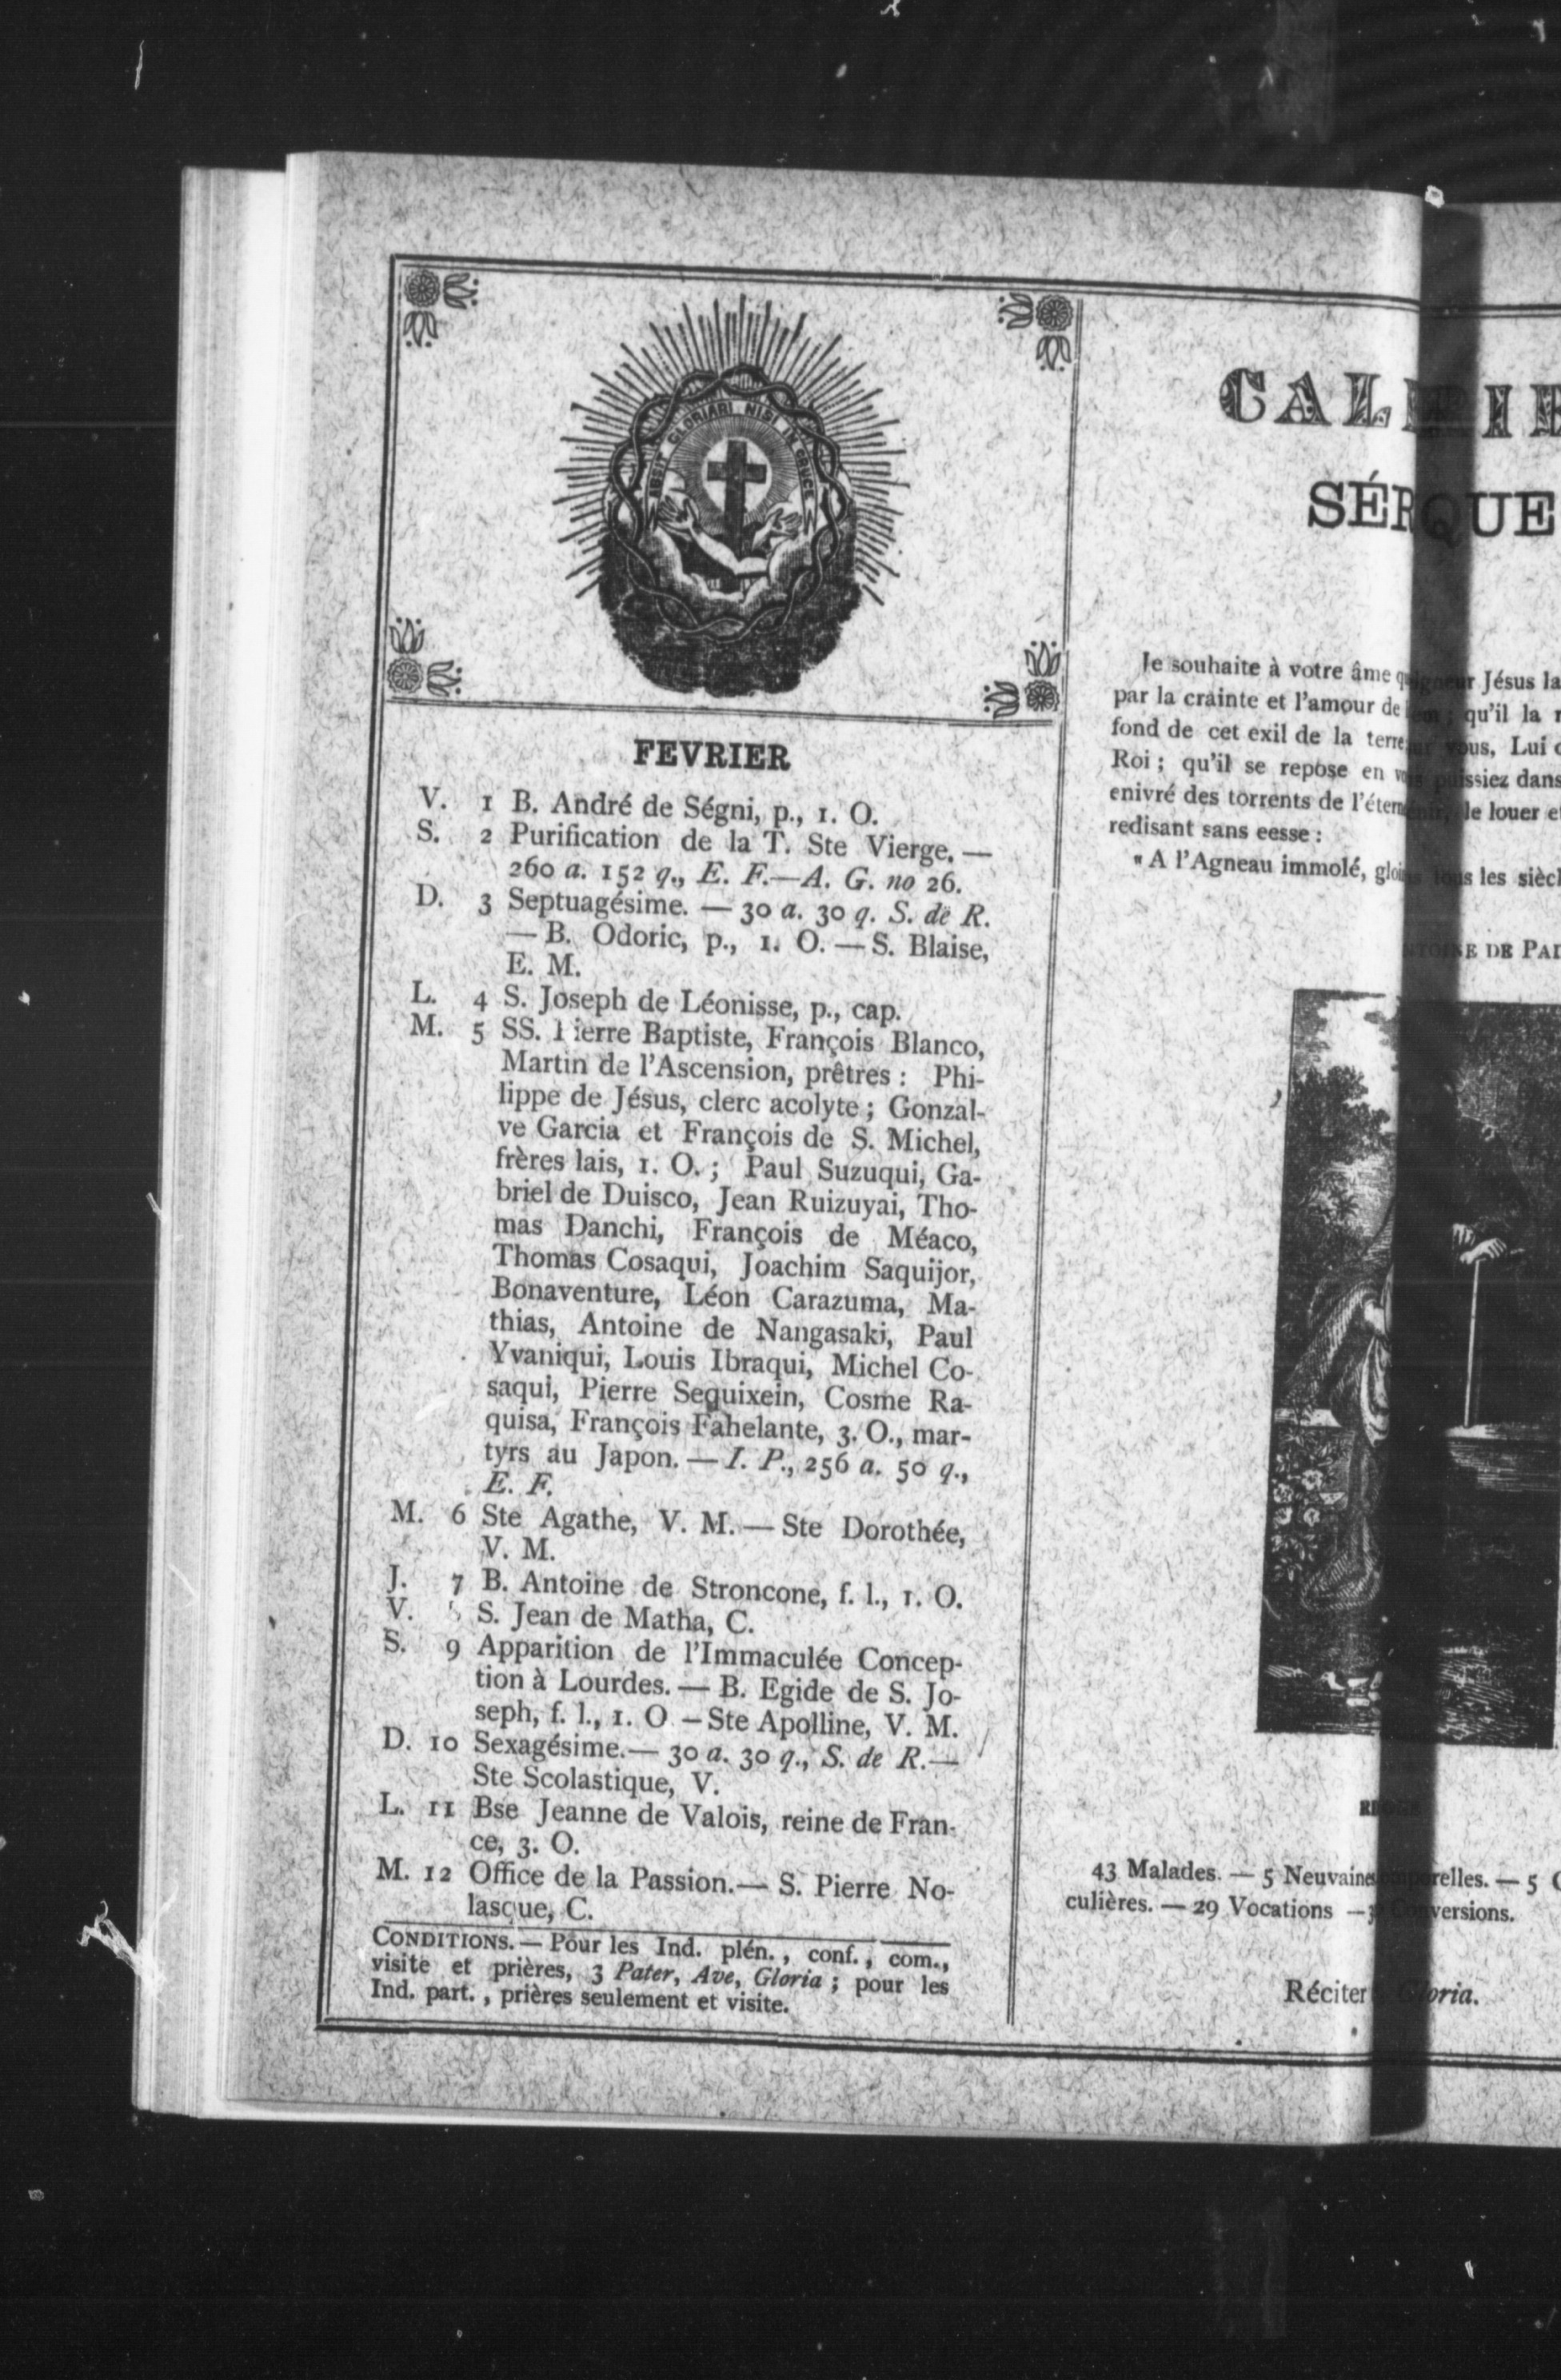 ABSIT GLORIARI NISI IN CRUCE
FEVRIER
V. 1 B. André de Ségni, p., 1. O.
S. 2 Purification de la T. Ste Vierge. —
260 a. 152 q., E. F.—A. G. no 26.
D. 3 Septuagésime. — 30 a. 30 q. S. de R.
— B. Odoric, p., 1. O. — S. Blaise,
E. M.
L. 4 S. Joseph de Léonisse, p., cap.
M. 5 SS. Pierre Baptiste, François Blanco,
Martin de l'Ascension, prêtres : Phi-
lippe de Jésus, clerc acolyte ; Gonzal-
ve Garcia et François de S. Michel,
frères lais, 1. O. ; Paul Suzuqui, Ga-
briel de Duisco, Jean Ruizuyai, Tho-
mas Danchi, François de Méaco,
Thomas Cosaqui, Joachim Saquijor,
Bonaventure, Léon Carazuma, Ma-
thias, Antoine de Nangasaki, Paul
Yvaniqui, Louis Ibraqui, Michel Co-
saqui, Pierre Sequixein, Cosme Ra-
quisa, François Fahelante, 3. O., mar-
tyrs au Japon. — I. P., 256 a. 50 q.,
E. F.
M. 6 Ste Agathe, V. M. — Ste Dorothée,
V. M.
J. 7 B. Antoine de Stroncone, f. l., 1. O.
V. S. Jean de Matha, C.
S. 9 Apparition de l'Immaculée Concep-
tion à Lourdes. — B. Egide de S. Jo-
seph, f. l., 1. O — Ste Apolline, V. M.
D. 10 Sexagésime.— 30 a. 30 q., S. de R.—
Ste Scolastique, V.
L. 11 Bse Jeanne de Valois, reine de Fran-
ce, 3. O.
M. 12 Office de la Passion.— S. Pierre No-
lasque, C.
CONDITIONS. — Pour les Ind. plén., conf., com.,
visite et prières, 3 Pater, Ave, Gloria ; pour les
Ind. part., prières seulement et visite.
CAL
SÉR QUE
Je souhaite à votre âme Jésus la
par la crainte et l'amour de qu'il la
fond de cet exil de la terre vous, Lui
Roi ; qu'il se repose en puissiez dans
enivré des torrents de le louer et
redisant sans eesse :
" A l'Agneau immolé, les
DE
43 Malades. — 5 Neuvaines — 5
culières. — 29 Vocations —
Réciter Gloria.